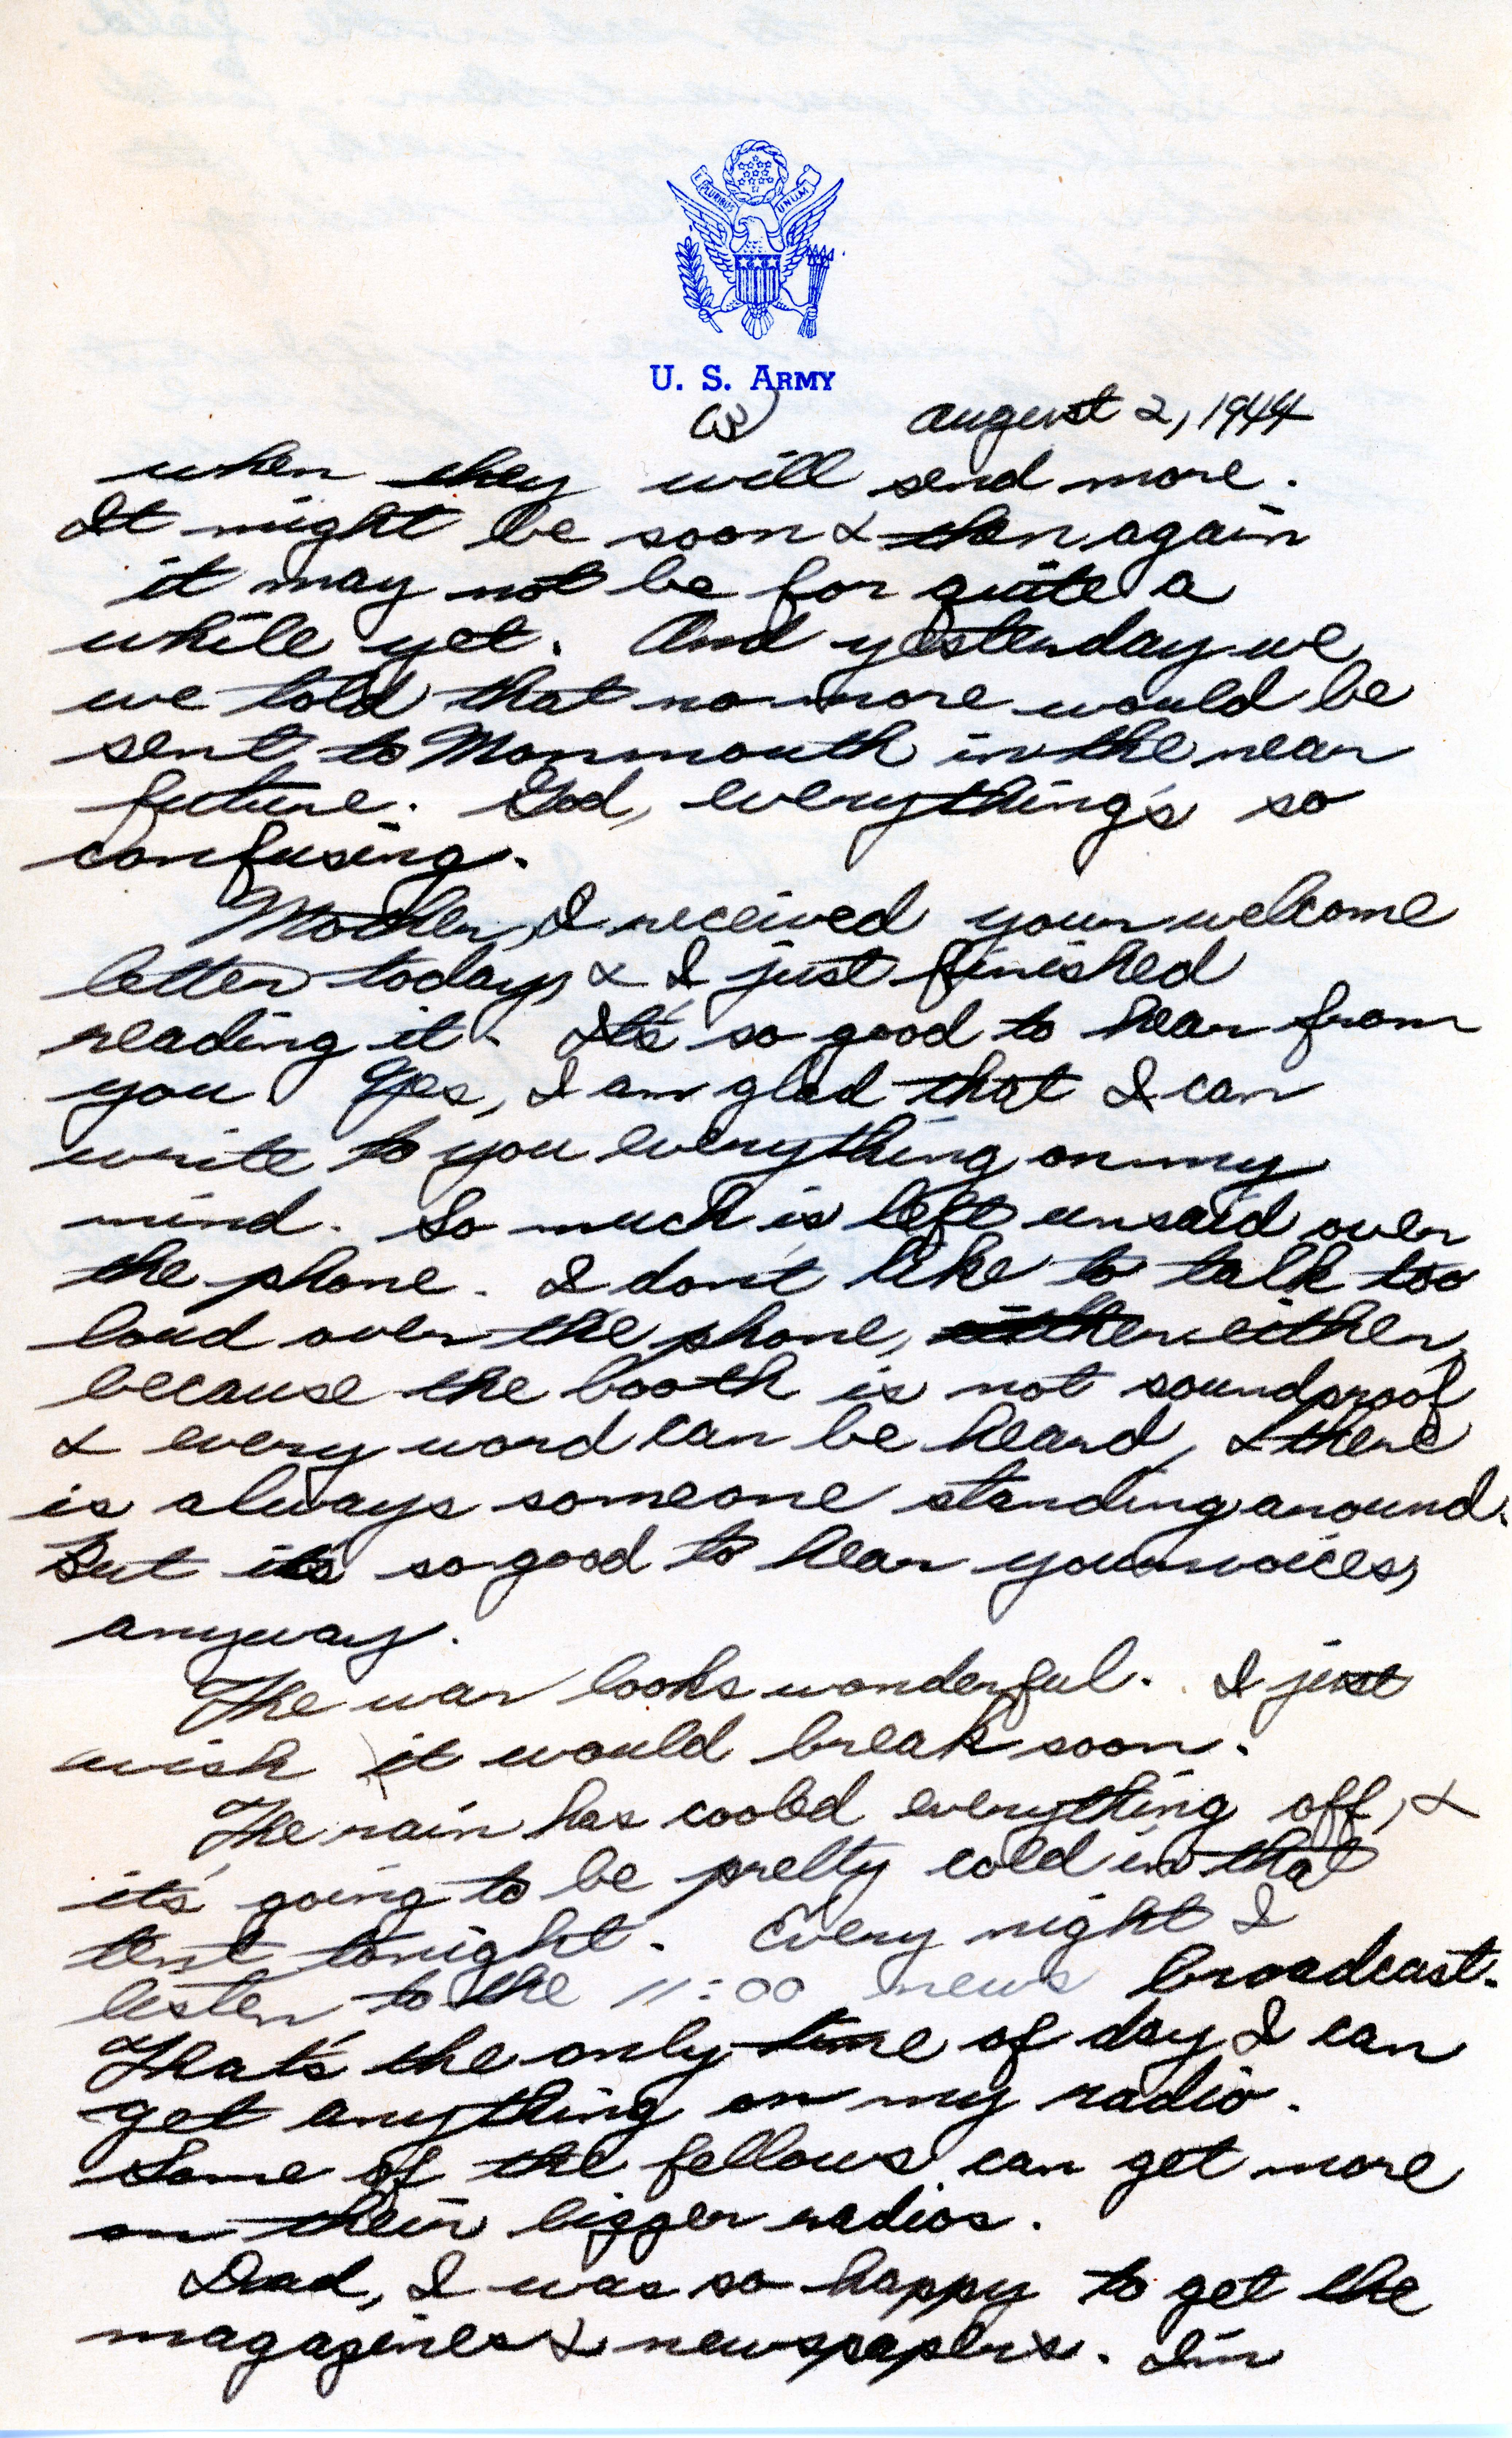 E PLURIBUS UNUM
U. S. ARMY
(3) August 2, 1944
when they will send more.
It might be soon & then again
it may not be for quite a
while yet. And yesterday we
we told that no more would be
sent to Monmouth in the near
future. God, everything's so
confusing.
Mother, I received your welcome
letter today, & I just finished
reading it. It's so good to hear from
you. Yes, I am glad that I can
write to you everything on my
mind. So much is left unsaid over
the phone. I don't like to talk too
loud over the phone, either,
because the booth is not soundproof
& every word can be heard, & there
is always someone standing around.
But it's so good to hear your voices,
anyway.
The war looks wonderful. I just
wish it would break soon.
The rain has cooled everything off, &
it's going to be pretty cold in that
tent tonight. Every night I
listen to the 11:00 news broadcast.
That's the only time of day I can
get anything on my radio.
Some of the fellows can get more
on their bigger radios.
Dad, I was so happy to get the
magazines & newspapers. I'm